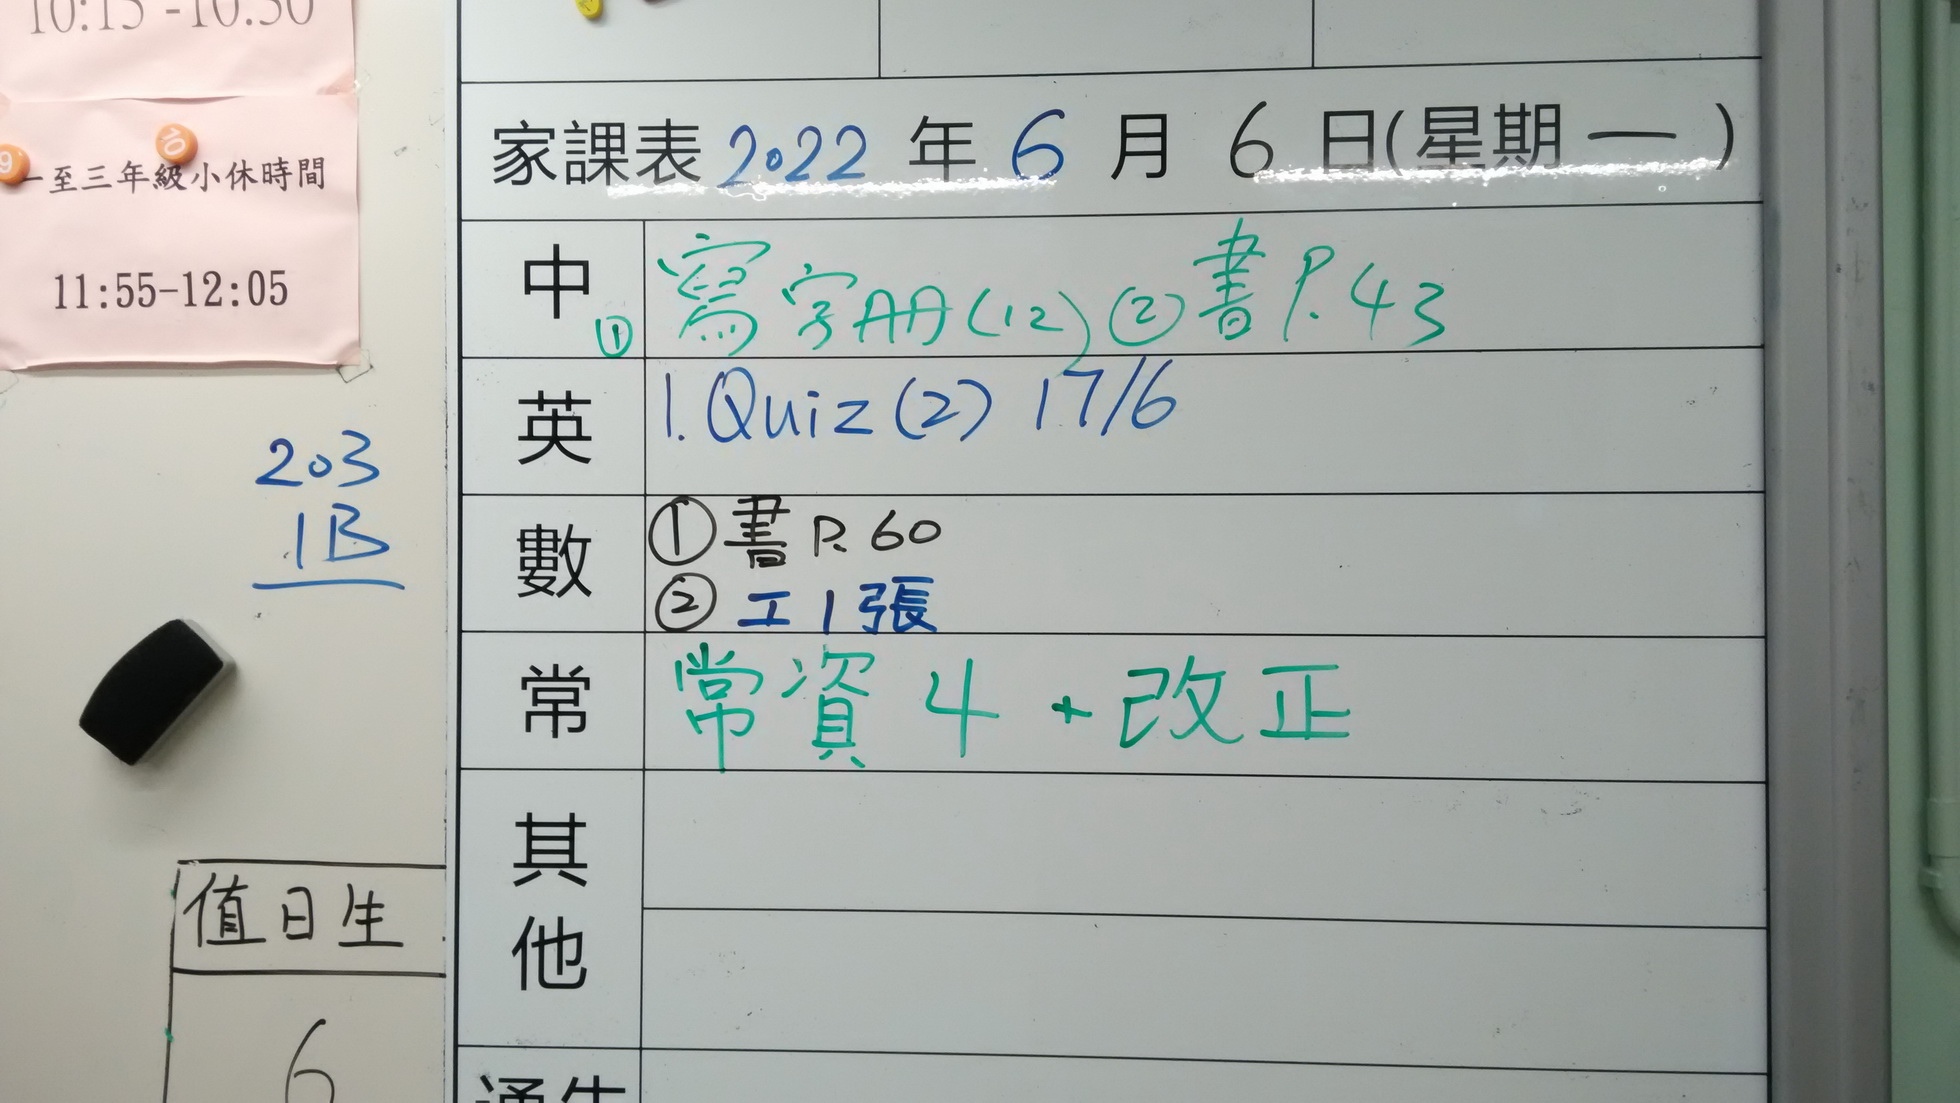 10:15-10:30
一至三年級小休時間
11:55-12:05
203
1B
值日生
6
家課表 2022 年 6 月 6 日(星期一)
中 ① 寫字册(12) ② 書 P.43
英 1. Quiz (2) 17/6
數 ① 書 P. 60
② 工 1 張
常 常資 4 + 改正
其他
通告
9
10